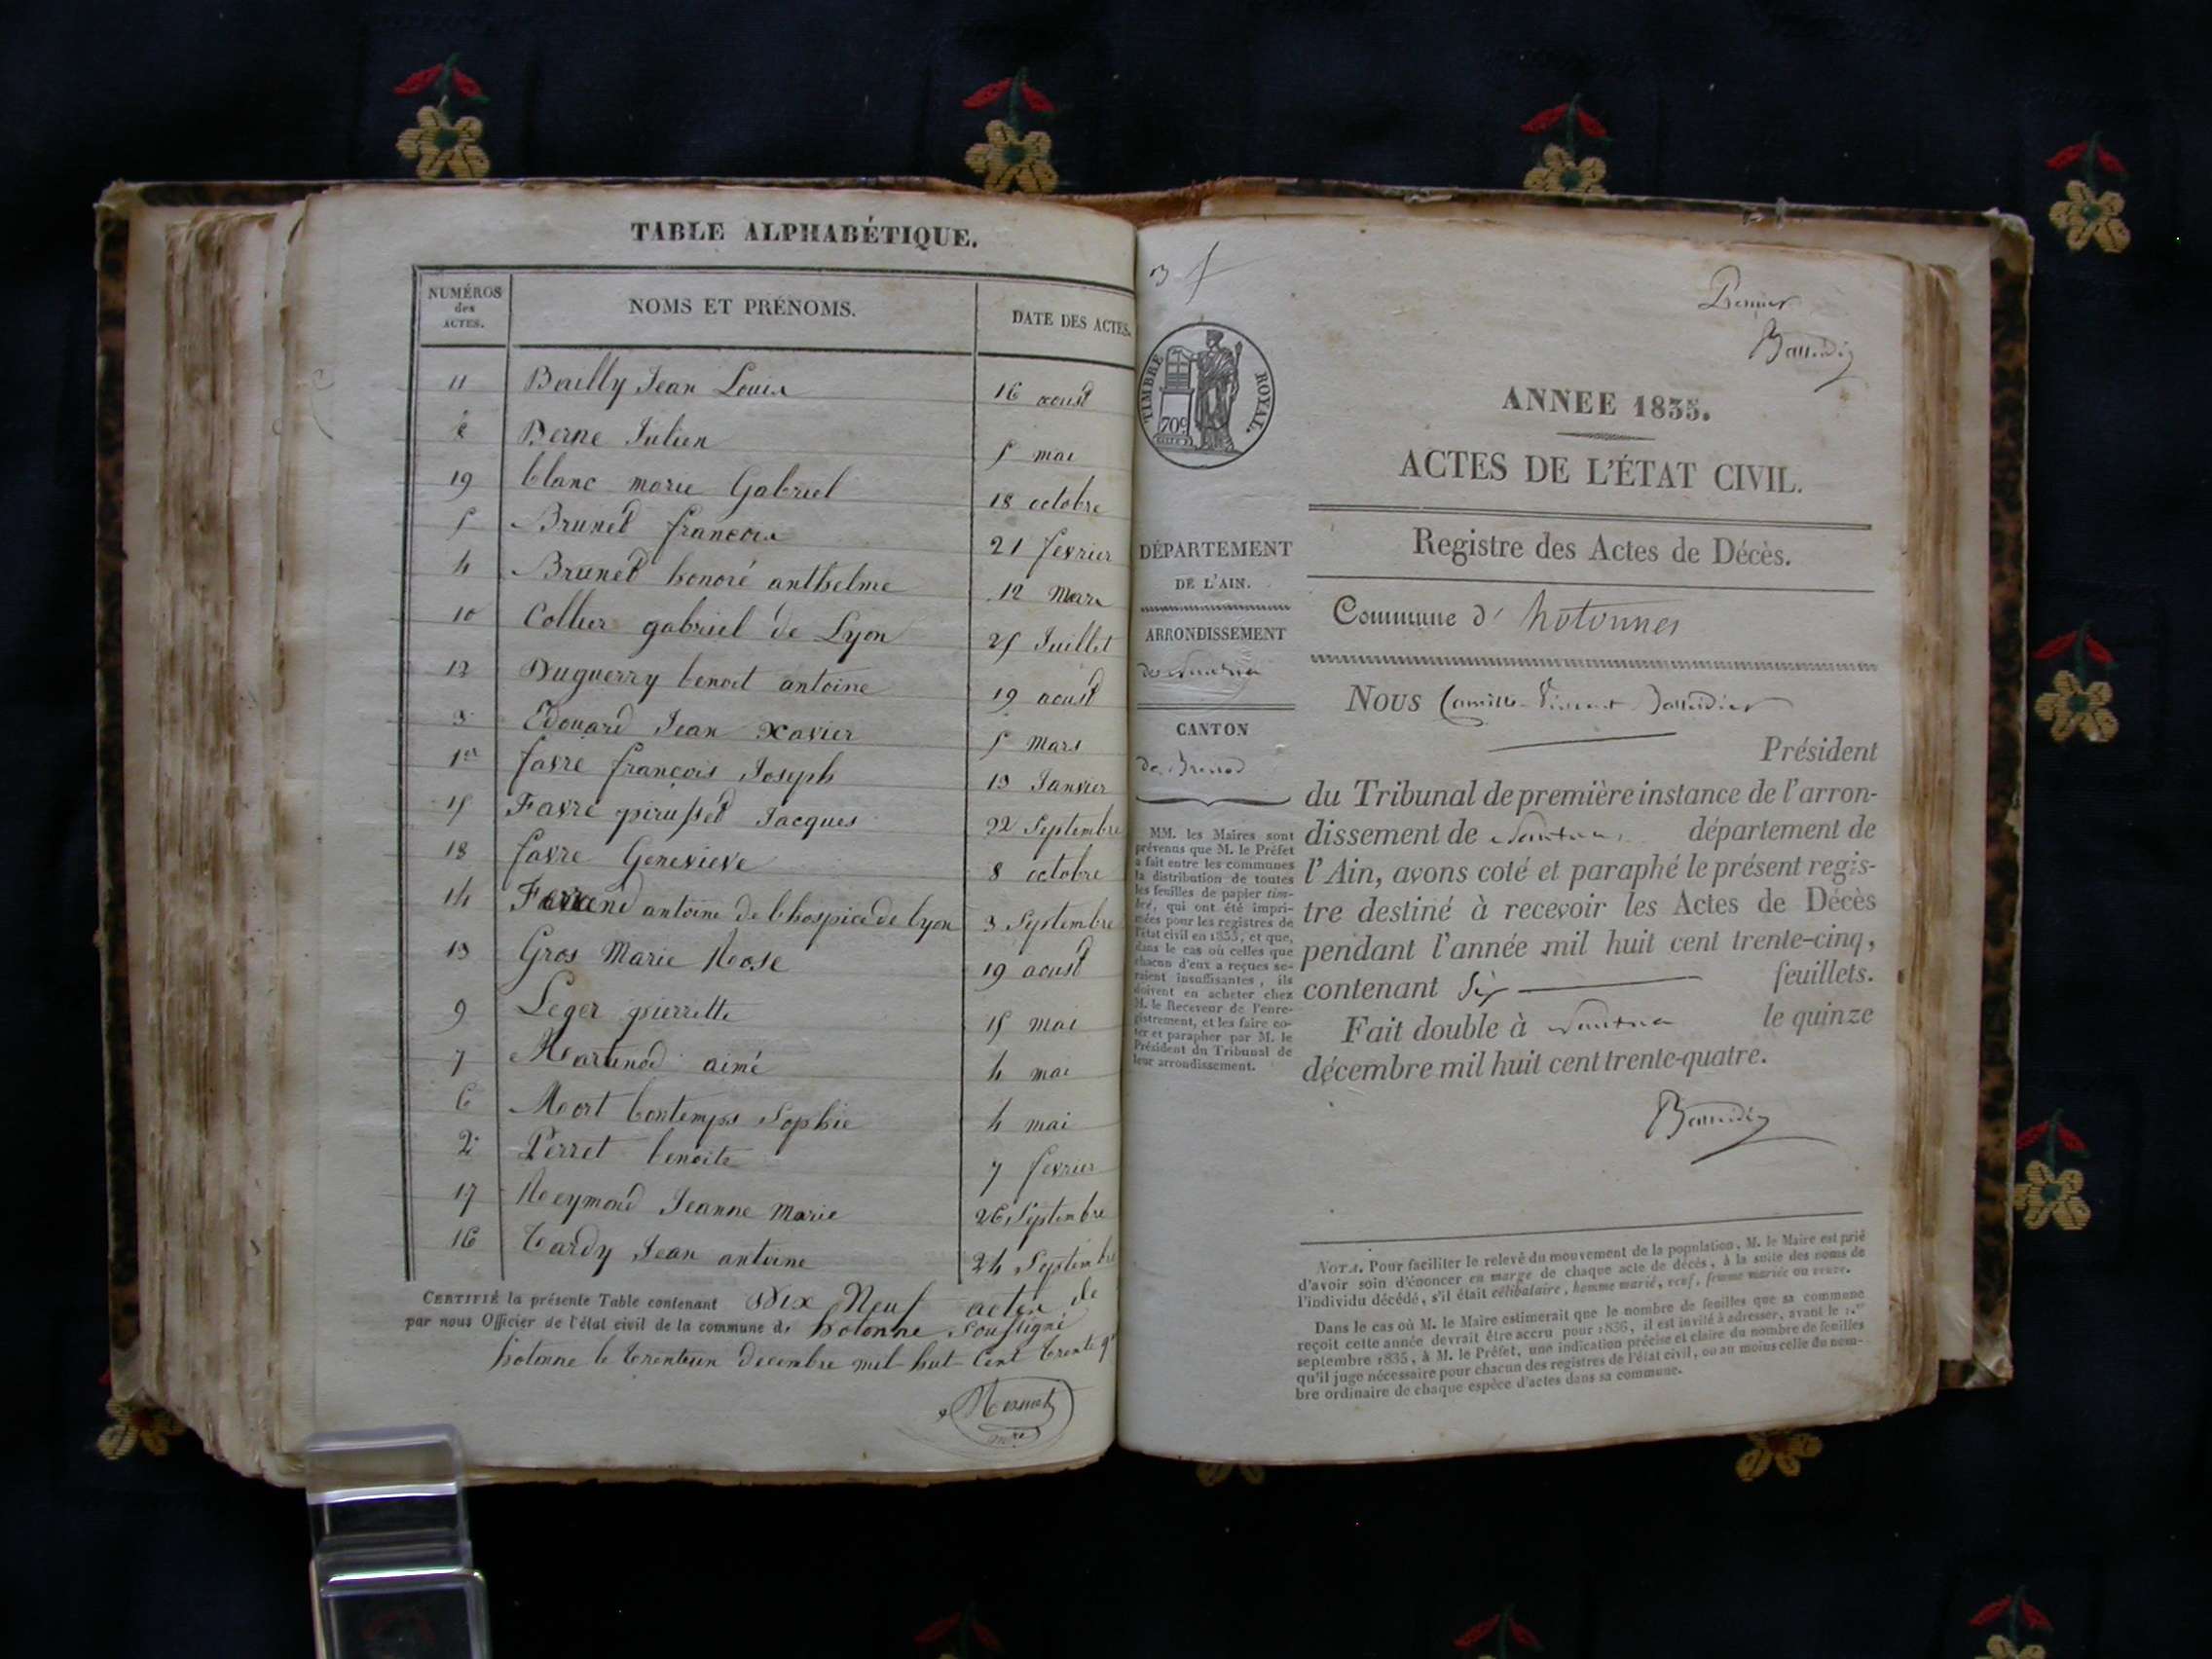 TABLE ALPHABÉTIQUE.
NUMÉROS des ACTES. NOMS ET PRÉNOMS. DATE DES ACTES.
11 Bailly Jean Louis 16 aoust
8 Berne Julien 5 mai
19 blanc marie Gabriel 18 octobre
5 Brunet françois 21 fevrier
4 Brunet honoré anthelme 12 Mars
10 Collier gabriel de Lyon 25 Juillet
12 Duguerry benoit antoine 19 aoust
3 Edouard Jean xavier 5 Mars
1er favre françois Joseph 13 Janvier
15 Favre pirusset Jacques 22 Septembre
18 favre Genevieve 8 octobre
14 antoine de lhospice de lyon 3 Septembre
13 Gros Marie Rose 19 aoust
9 Leger pierrette 15 mai
7 Martinod aimé 4 mai
6 Mort bontemps Sophie 4 mai
2 Perret benoite 7 fevrier
17 Reymond Jeanne Marie 26 Septembre
16 Tardy Jean antoine 24 Septembre
CERTIFIÉ la présente Table contenant Dix Neuf actes de
par nous Officier de l'état civil de la commune d. hotonne Soussigné
hotonne le trenteun decembre mil-huit-Cent trente
TIMBRE ROYAL.
70c
Premier
ANNEE 1835.
ACTES DE L'ÉTAT CIVIL.
Registre des Actes de Décès.
Commune d' hotonnes
DÉPARTEMENT
DE L'AIN.
ARRONDISSEMENT
de Nantua
CANTON
de Brenod
MM. les Maires sont
prévenus que M. le Préfet
a fait entre les communes
la distribution de toutes
les feuilles de papier tim-
bré, qui ont été impri-
mées pour les registres de
l'état civil en 1835, et que,
dans le cas où celles que
chacun d'eux a reçues se-
raient insuffisantes, ils
doivent en acheter chez
M. le Receveur de l'enre-
gistrement, et les faire co-
ter et parapher par M. le
Président du Tribunal de
leur arrondissement.
Nous Camille-Vincent
Président
du Tribunal de première instance de l'arron-
dissement de Nantua, département de
l'Ain, avons coté et paraphé le présent regis-
tre destiné à recevoir les Actes de Décès
pendant l'année mil huit cent trente-cinq,
contenant Six feuillets.
Fait double à Nantua le quinze
décembre mil huit cent trente-quatre.
NOTA. Pour faciliter le relevé du mouvement de la population, M. le Maire est prié
d'avoir soin d'énoncer en marge de chaque acte de décès, à la suite des noms de
l'individu décédé, s'il était célibataire, homme marié, veuf, femme mariée ou veuve.
Dans le cas où M. le Maire estimerait que le nombre de feuilles que sa commune
reçoit cette année devrait être accru pour 1836, il est invité à adresser, avant le 1.er
septembre 1835, à M. le Préfet, une indication précise et claire du nombre de feuilles
qu'il juge nécessaire pour chacun des registres de l'état civil, ou au moins celle du nom-
bre ordinaire de chaque espèce d'actes dans sa commune.